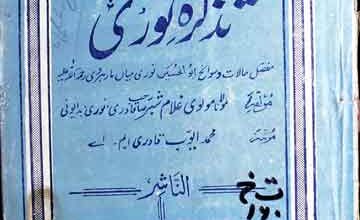 تذکرہ نوری
مفصل حالات وسوانح ابو الحسین نوری میاں مارہروی رحمۃ اللہ علیہ
مؤلفہ مولوی غلام شبر صاحب قادری نوری بدایونی
مرتبہ محمد ایوب قادری ایم۔ اے
الناشر